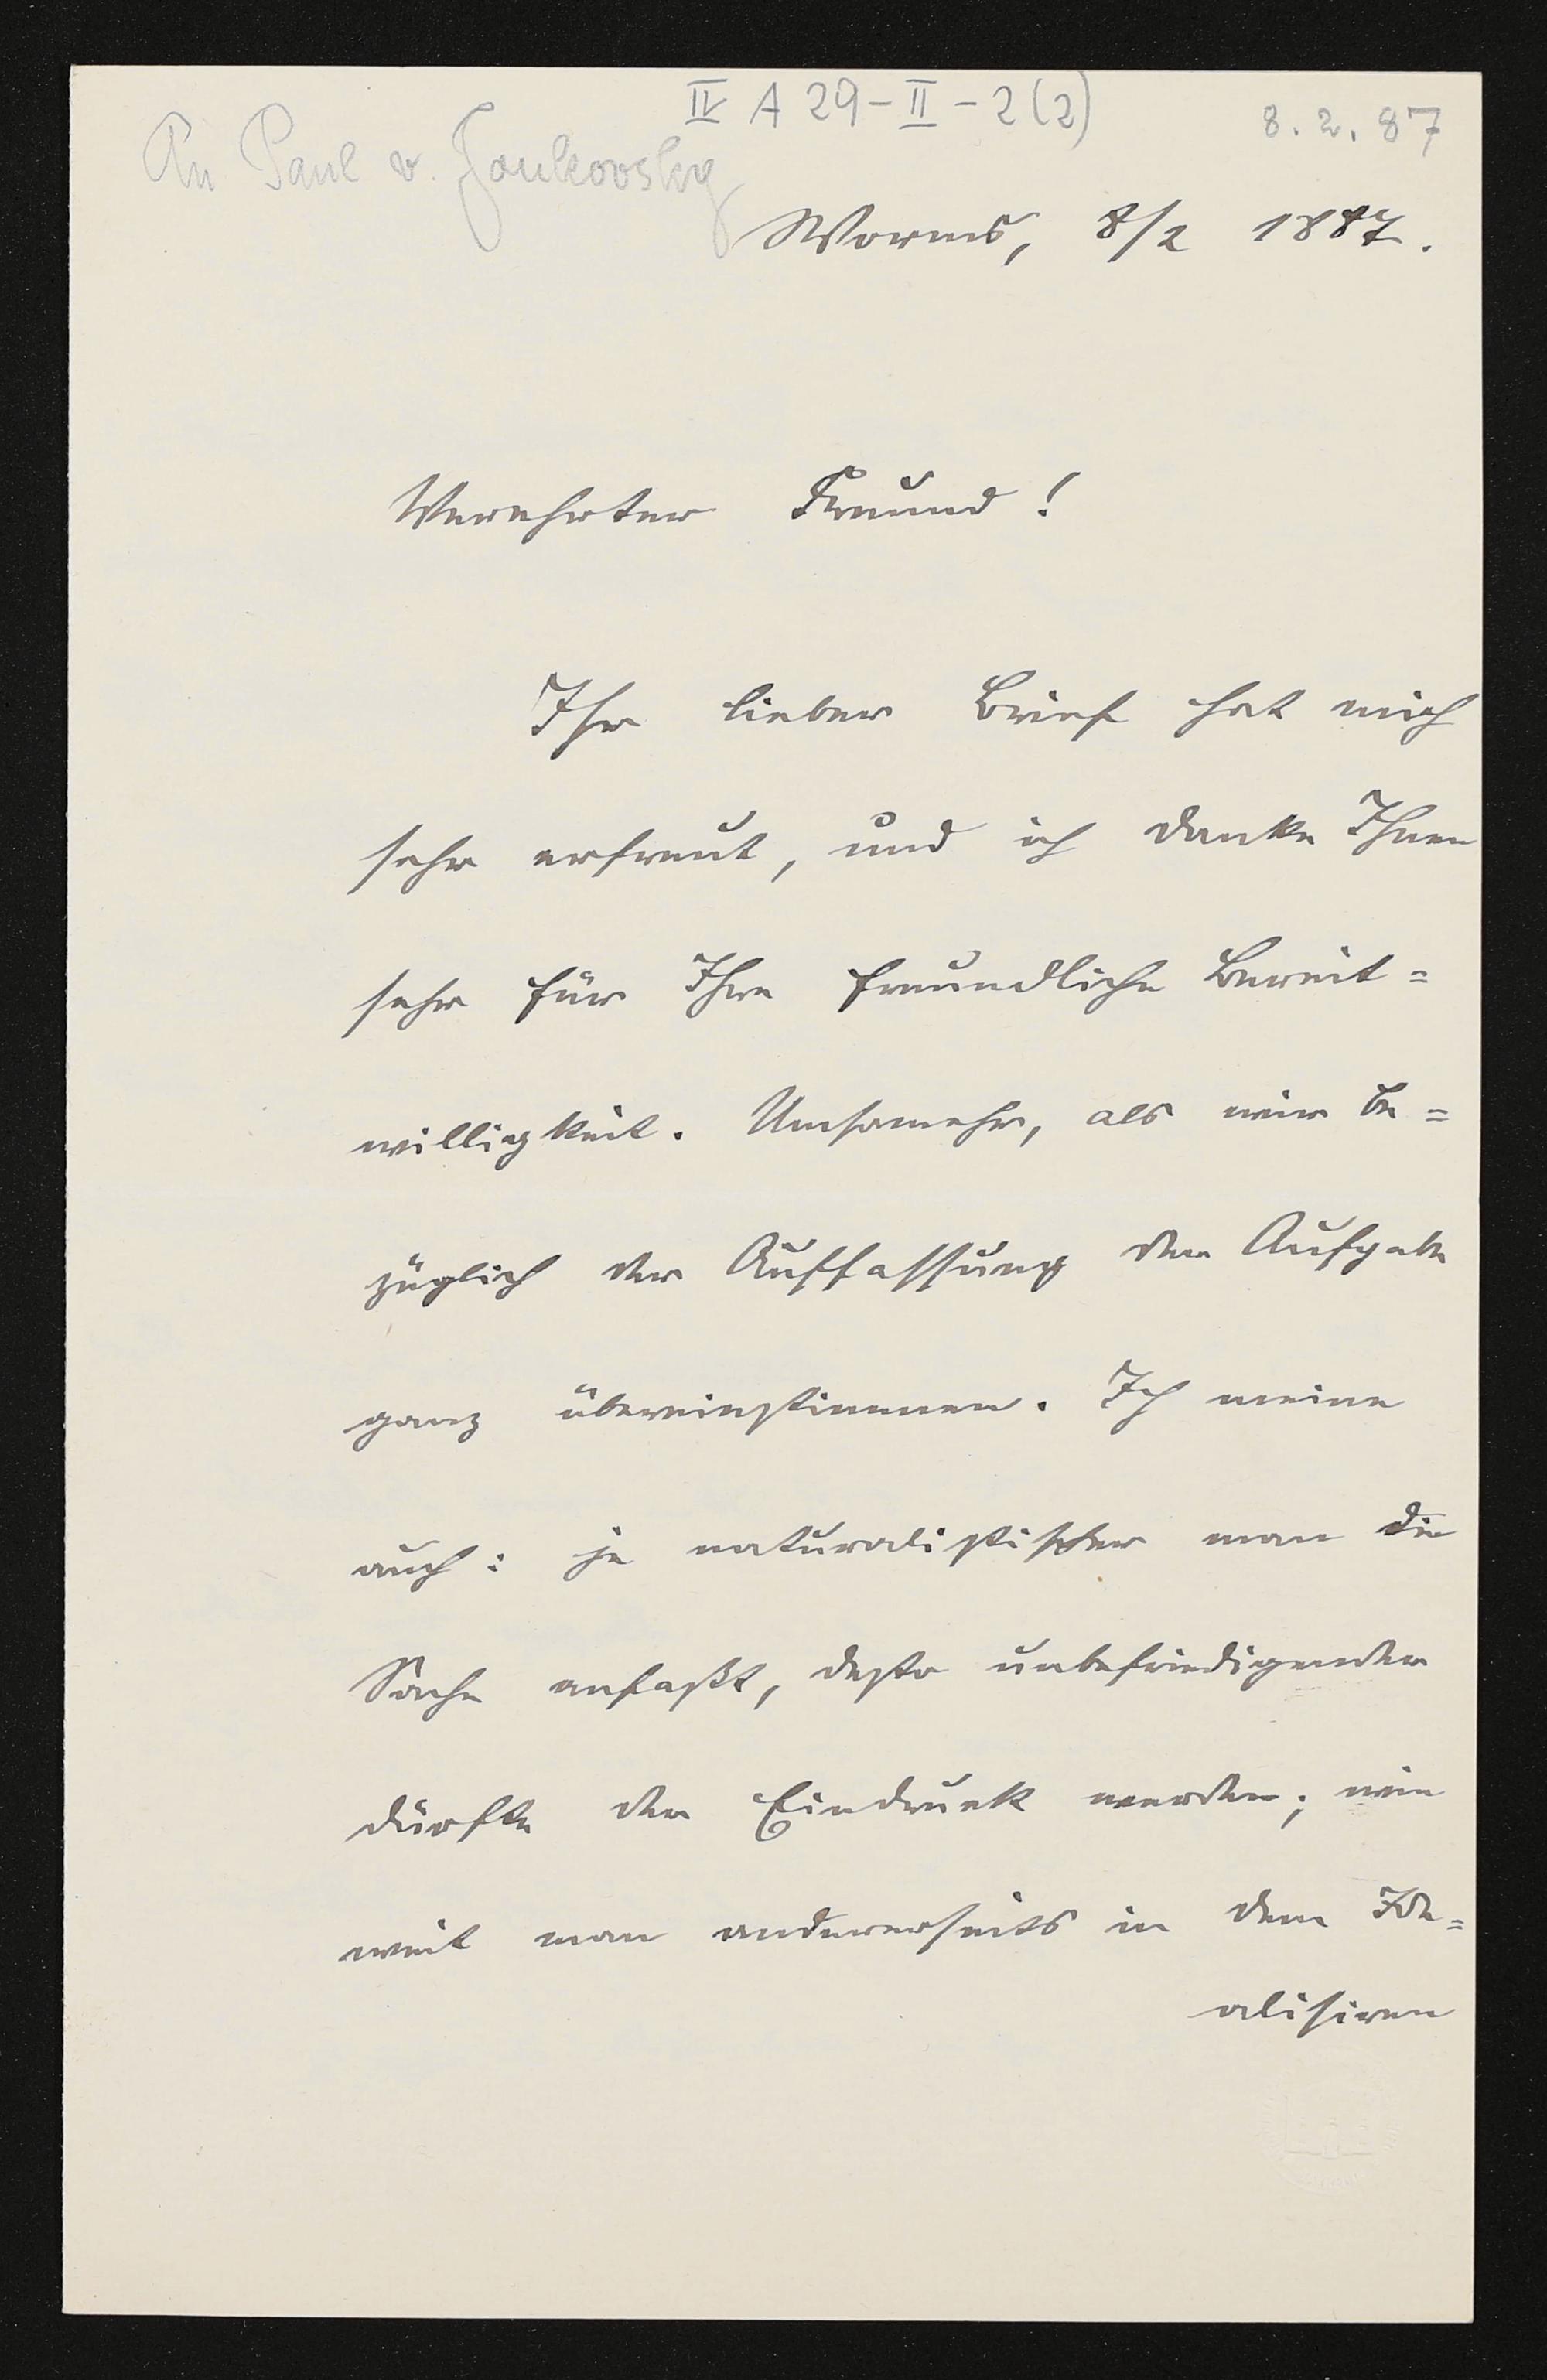 IV A 29-II-2(2)
8.2.87
An Paul v. Joukovsky
Worms, 8/2 1887.
Verehrter Freund!
Ihr lieber Brief hat mich
sehr erfreut, und ich danke Ihnen
sehr für Ihre freundliche Bereit=
willigkeit. Umsomehr, als wir be=
züglich der Auffassung der Aufgabe
ganz übereinstimmen. Ich meine
auch: je naturalistischer man die
Sache anfaßt, desto unbefriedigender
dürfte der Eindruck werden; wie
weit man andererseits in dem Ide=
alisiren